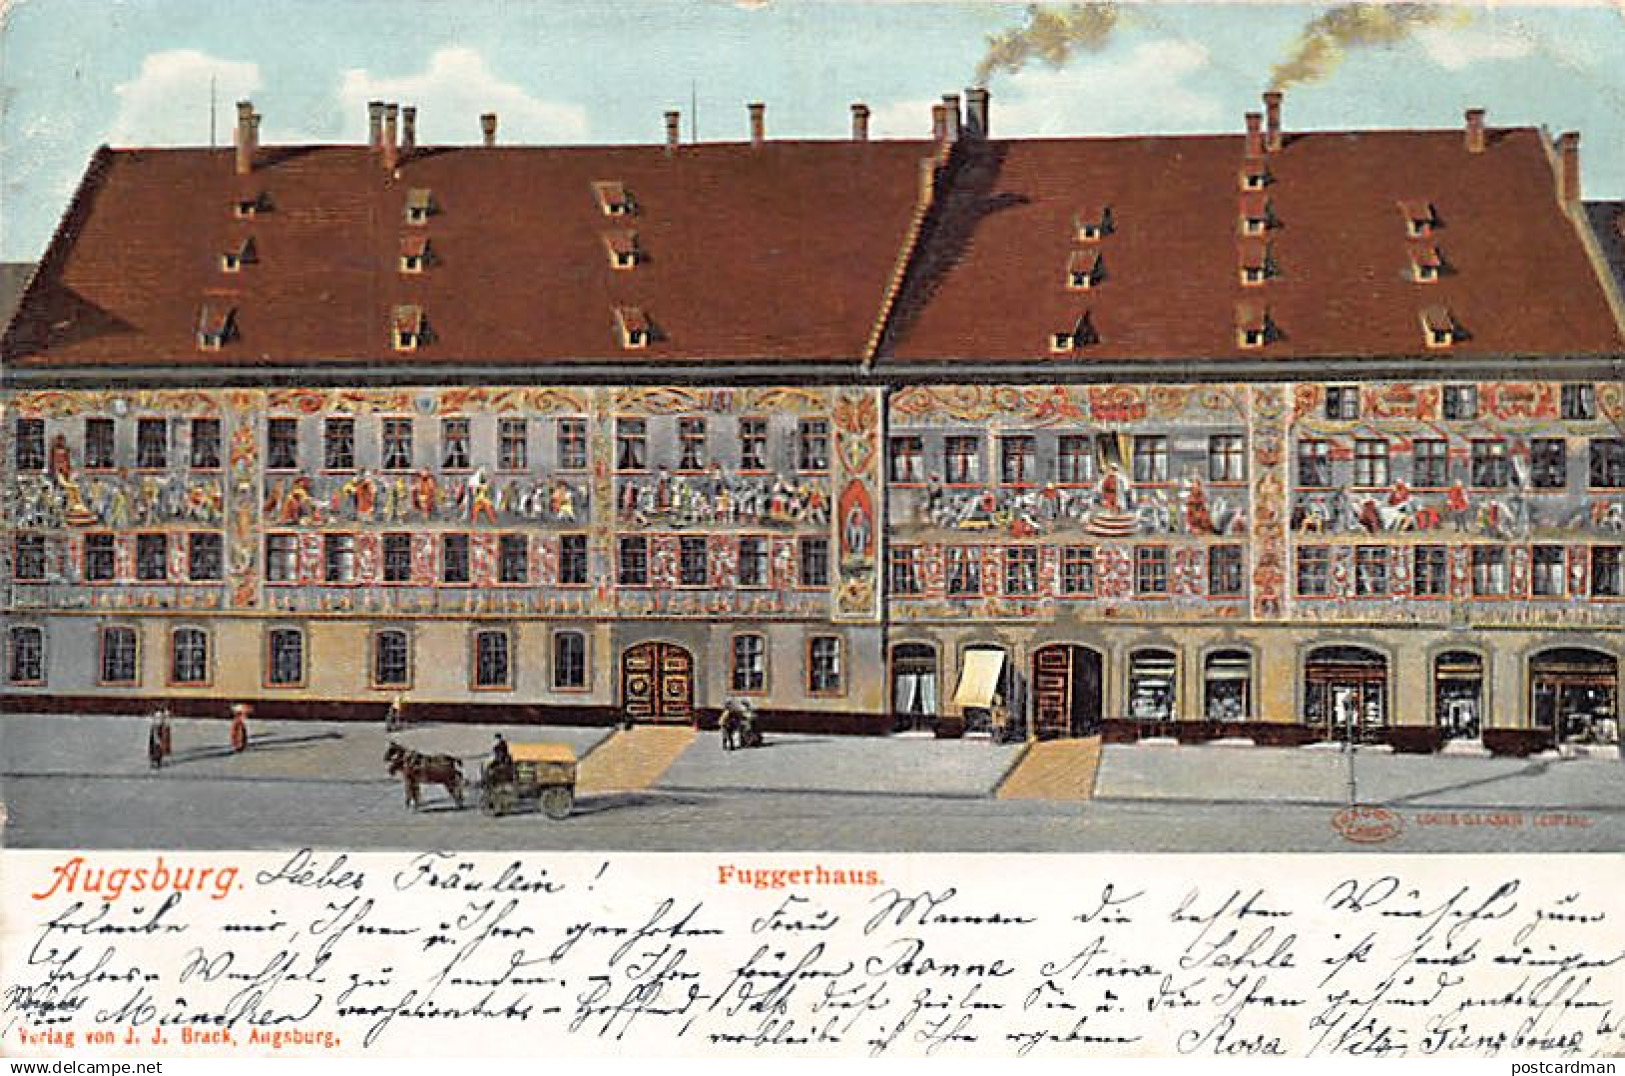 LOUIS GLASER LEIPZIG
Augsburg. Liebes Fräulein! Fuggerhaus.
Erlaube mir, Ihnen u. Ihrer geehrten Frau Maman die besten Wünsche zum
Jahres-Wechsel zu senden. - Ihre frühere Bonne Anna ist seit einigen
in München verheiratet - Hoffend, daß diese Zeilen Sie u. die Ihren gesund antreffen,
Verlag von J. J. Brack, Augsburg.
verbleibe ich Ihre ergebene Rosa
postcardman